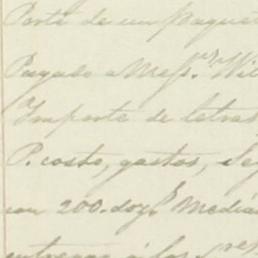 Porte de un paquet
Pagado a Mess.rs Wil
Importe de letras
P. costo, gastos, Seg
con 200. doz.s Mediá
entregas á los S.res